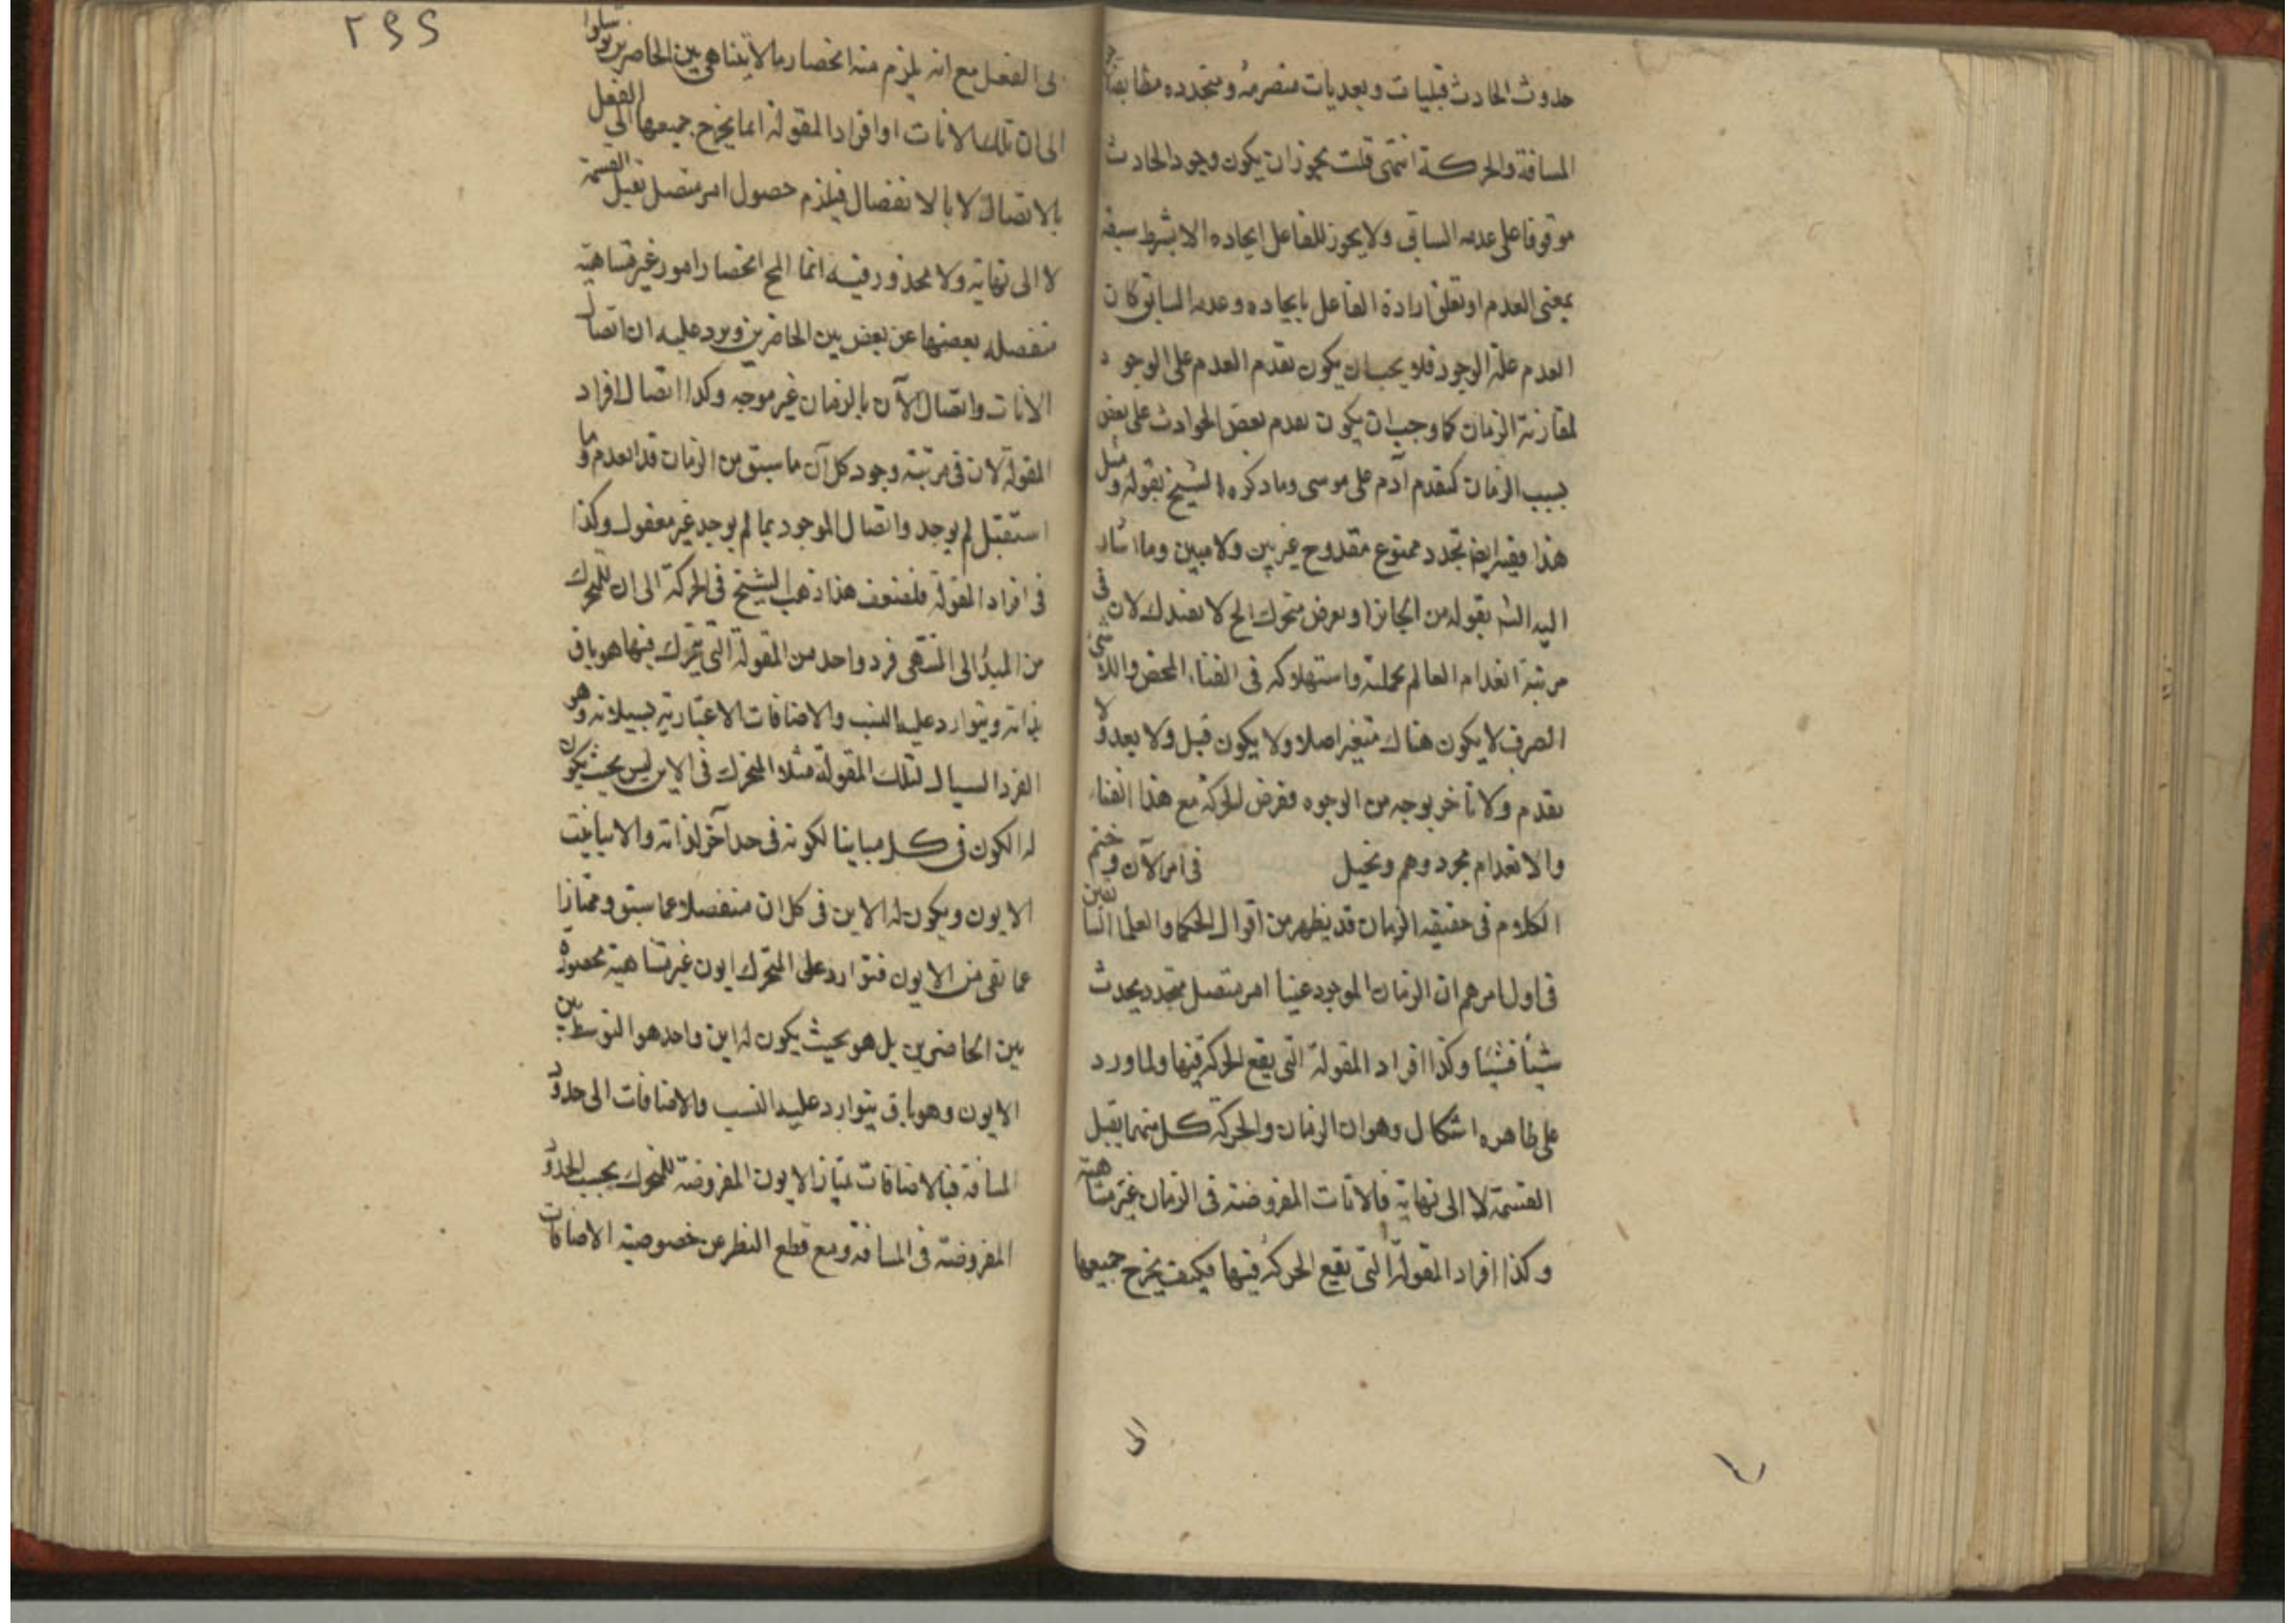 حدوث الحادث قبليات وبعديات منصرمة ومتجدده مطابقة
المسافة والحركة انتهى قلت يجوز ان يكون وجود الحادث
موقوفا على عدمه السابق ولا يجوز للفاعل ايجاده الا بشرط سبقه
بمعنى العدم او تعلق ارادة الفاعل بايجاده وعدمه السابق كان
العدم علة الوجود فلا يجب ان يكون تقدم العدم على الوجود
لمقارنة الزمان كما وجب ان يكون تقدم بعض الحوادث على بعض
بسبب الزمان كتقدم آدم على موسى وما ذكره الشيخ بقوله ومثل
هذا ففيه ايضا تجدد ممنوع مقدوح غير بين ولا مبين وما اشار
اليه الشه بقوله من الجائز او بعرض متحرك الخ لا يفيدك لان في
مرتبة انعدام العالم بجملته واستهلاكه في الفناء المحض واللاشئ
الصرف لا يكون هناك متغير اصلا ولا يكون قبل ولا بعد ولا
تقدم ولا تأخر بوجه من الوجوه ففرض الحركة مع هذا الفناء
والانعدام مجرد وهم وتخيل في امر الآن وختم
الكلام في حقيقة الزمان قد يظهر من اقوال الحكما والعلما السابقين
في اول امرهم ان الزمان الموجود عينا امر متصل متجدد يحدث
شيئا فشيئا وكذا افراد المقولة التي يقع الحركة فيها ولما ورد
على ظاهره اشكال وهو ان الزمان والحركة كل منهما يقبل
القسمة لا الى نهاية فالانات المفروضة في الزمان غير متناهية
وكذا افراد المقولة التي تقع الحركة فيها فكيف يخرج جميعها
الى
٢٩٢
الى الفعل مع انه يلزم منه انحصار ما لا يتناهى بين الحاصرين
الى ان تلك الانات او افراد المقولة انما يخرج جميعها الى الفعل
بالاتصال لا بالانفصال فيلزم حصول امر متصل يقبل القسمة
لا الى نهاية ولا محذور فيه انما المح انحصار امور غير متناهية
منفصلة بعضها عن بعض بين الحاصرين ويرد عليه ان اتصال
الانات واتصال الآن بالزمان غير موجه وكذا اتصال افراد
المقولة لان في مرتبة وجود كل آن ما سبق من الزمان قد انعدم وما
استقبل لم يوجد واتصال الموجود بما لم يوجد غير معقول وكذا
في افراد المقولة فلضعف هذا ذهب الشيخ في الحركة الى ان للمتحرك
من المبدأ الى المنتهى فرد واحد من المقولة التي يتحرك فيها هو باق
بذاته ويتوارد عليه النسب والاضافات الاعتبارية بسيلانه وهو
الفرد السيال لتلك المقولة مثلا المتحرك في الاين ليس بحيث يكون
له الكون في كل مباينا لكونه في حد آخر لذاته والا تباينت
الايون ويكون له الاين في كل ان منفصلا عما سبق وممتازا
عما بقى من الايون فتوارد على المتحرك ايون غير متناهية محصورة
بين الحاضرين بل هو بحيث يكون له اين واحد هو التوسط بين
الايون وهو باق يتوارد عليه النسب والاضافات الى حدود
المسافة فبالاضافات تمتاز الايون المفروضة للمتحرك بحسب الحدود
المفروضة في المسافة ومع قطع النظر عن خصوصية الاضافات